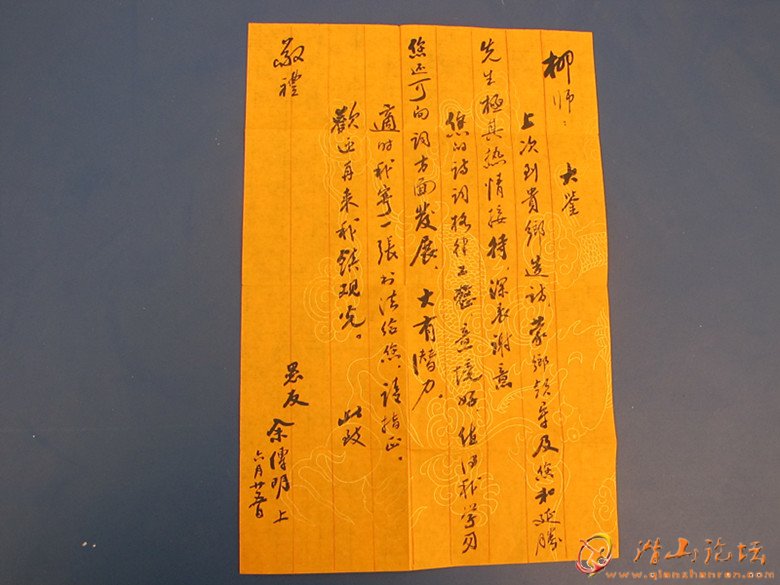 柳师：
大鉴
上次到貴鄉造访，蒙鄉领导及您和延勝
先生極其热情接待，深表谢意
您的诗词格律工整，意境好，值得我学习
您还可向词方面发展，大有潜力。
適时我寄一張书法给您，请指正。
歡迎再来我鎮观光。
此致
敬禮
愚友 余傳明 上
六月廿五日
潜山论坛
www.qianshanren.com